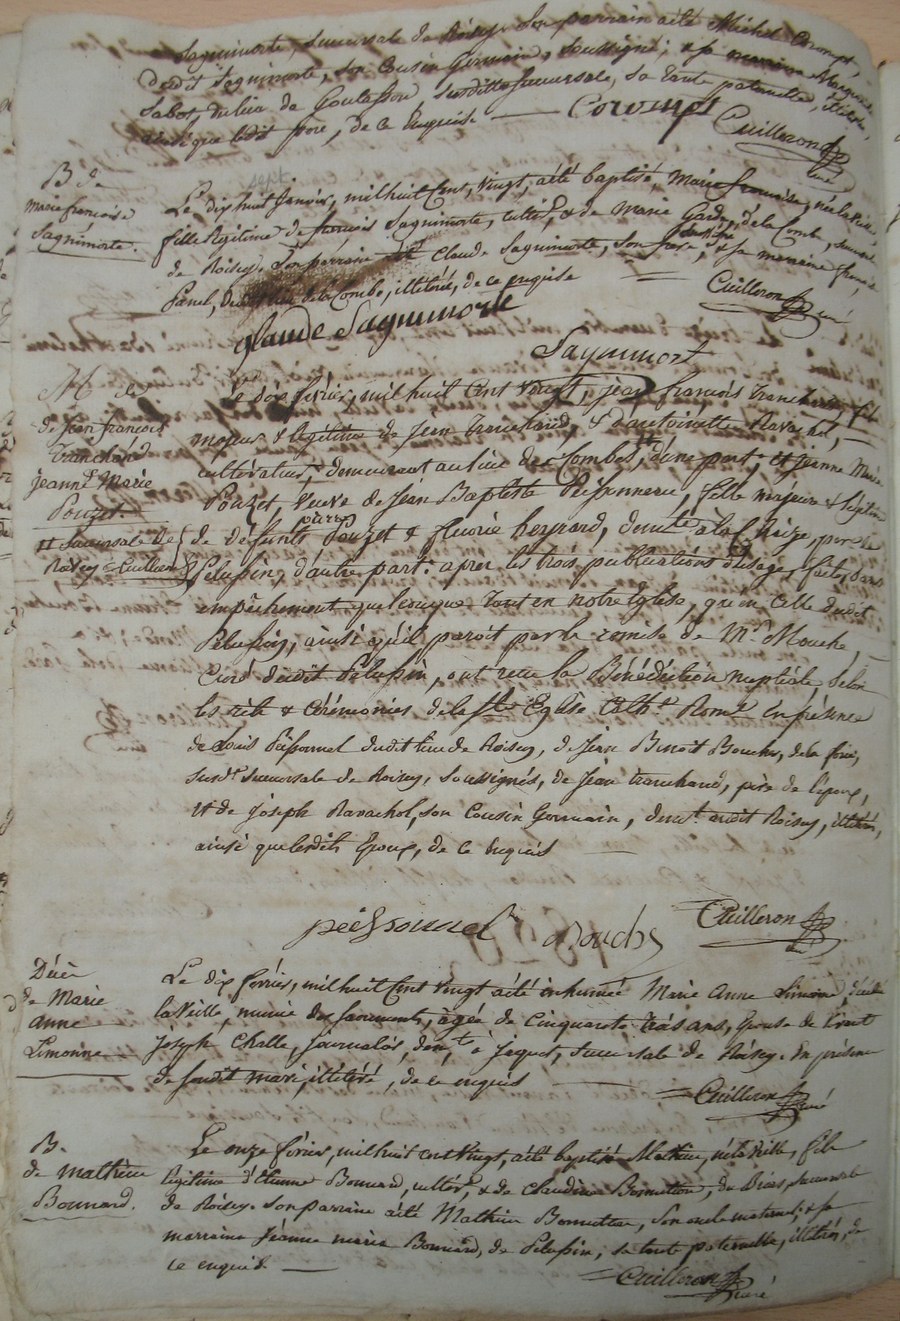 Saquimorte, succursale de Roisey. Son parrain a été Michel Corompt,
dudit Saquimorte, son cousin Germain, soussigné; & sa marraine Marguerite
Sabot, du lieu de Goutaffon susditte succursale, sa tante paternelle, illitérée,
ainsi que ledit père, de ce enquise Corompt
Cuilleron
curé
B. de
marie françoise
Saquimorte.
Le dix huit janvier, mil huit Cent, vingt, a été baptisé, Marie françoise, née la veille,
fille légitime de françois Saquimorte, cultiv., & de Marie Gardo, de la Combe, succursale
de Roisey. Son parrain a été Claude Saquimorte, son frère, & sa marraine françoise
Panel, de la Combe, illitérée, de ce enquise
Cuilleron
curé
glaude Saquimorte
Saquimort
M. de
de Jean françois
Tranchand
jeanne Marie
Pouzet.
Le dix février, mil huit Cent Vingt, jean françois Tranchand, fils
majeur & légitime de Jean Tranchand, & d'antoinette Ravachol,
cultivateurs, demeurant au lieu de Combe, d'une part, et jeanne Marie
Pouzet, veuve de Jean Baptiste, fille majeure & légitime
et succursale de
Roisey Cuilleron
de défunts Pouzet & fleurie, demte à la Chaize, par. de
Pelussin, d'autre part. apres les trois publications d'usage, faites sans
empêchement quelconque tant en notre Eglise, que en celle dudit
Pelussin, ainsi qu'il paroit par la remise de Mr Mouche,
Curé dudit Pelussin, ont reçu la Bénédiction nuptiale, selon
les rits & cérémonies de la Ste Eglise Cath. Rome En présence
de Louis Peissonnel dudit lieu de Roisey, de Jean Benoit Bouchu, de la
susdt succursale de Roisey, soussignés, de Jean tranchand, père de l'époux,
et de joseph Ravachol, son Cousin Germain, demt audit Roisey, illitérés,
ainsi que lesdits époux, de ce enquis
peissonnel Bouchu Cuilleron
Décès
de Marie
anne
Limonne
Le dix février, mil huit Cent vingt a été inhumée Marie Anne Limone, décédée
la veille, munie des sacrements, agée de cinquante trois ans, épouse de vivant
joseph Challe, journalier, demt à Jaquet, succursale de Roisey. En présence
de sondit mari, illitéré, de ce enquis
Cuilleron
curé
B.
de mathieu
Bonnard.
Le onze février, mil huit cent vingt, a été baptisé Mathieu, né la veille, fils
légitime d'Etienne Bonnard, cultiv., & de Claudine Bonnetton, du Briat, succursale
de Roisey. Son parrain a été Mathieu Bonnetton, son oncle maternel; & sa
marraine Jeanne marie Bonnard, de Pelussin, sa tante paternelle, illitérés, de
ce enquis
Cuilleron
curé